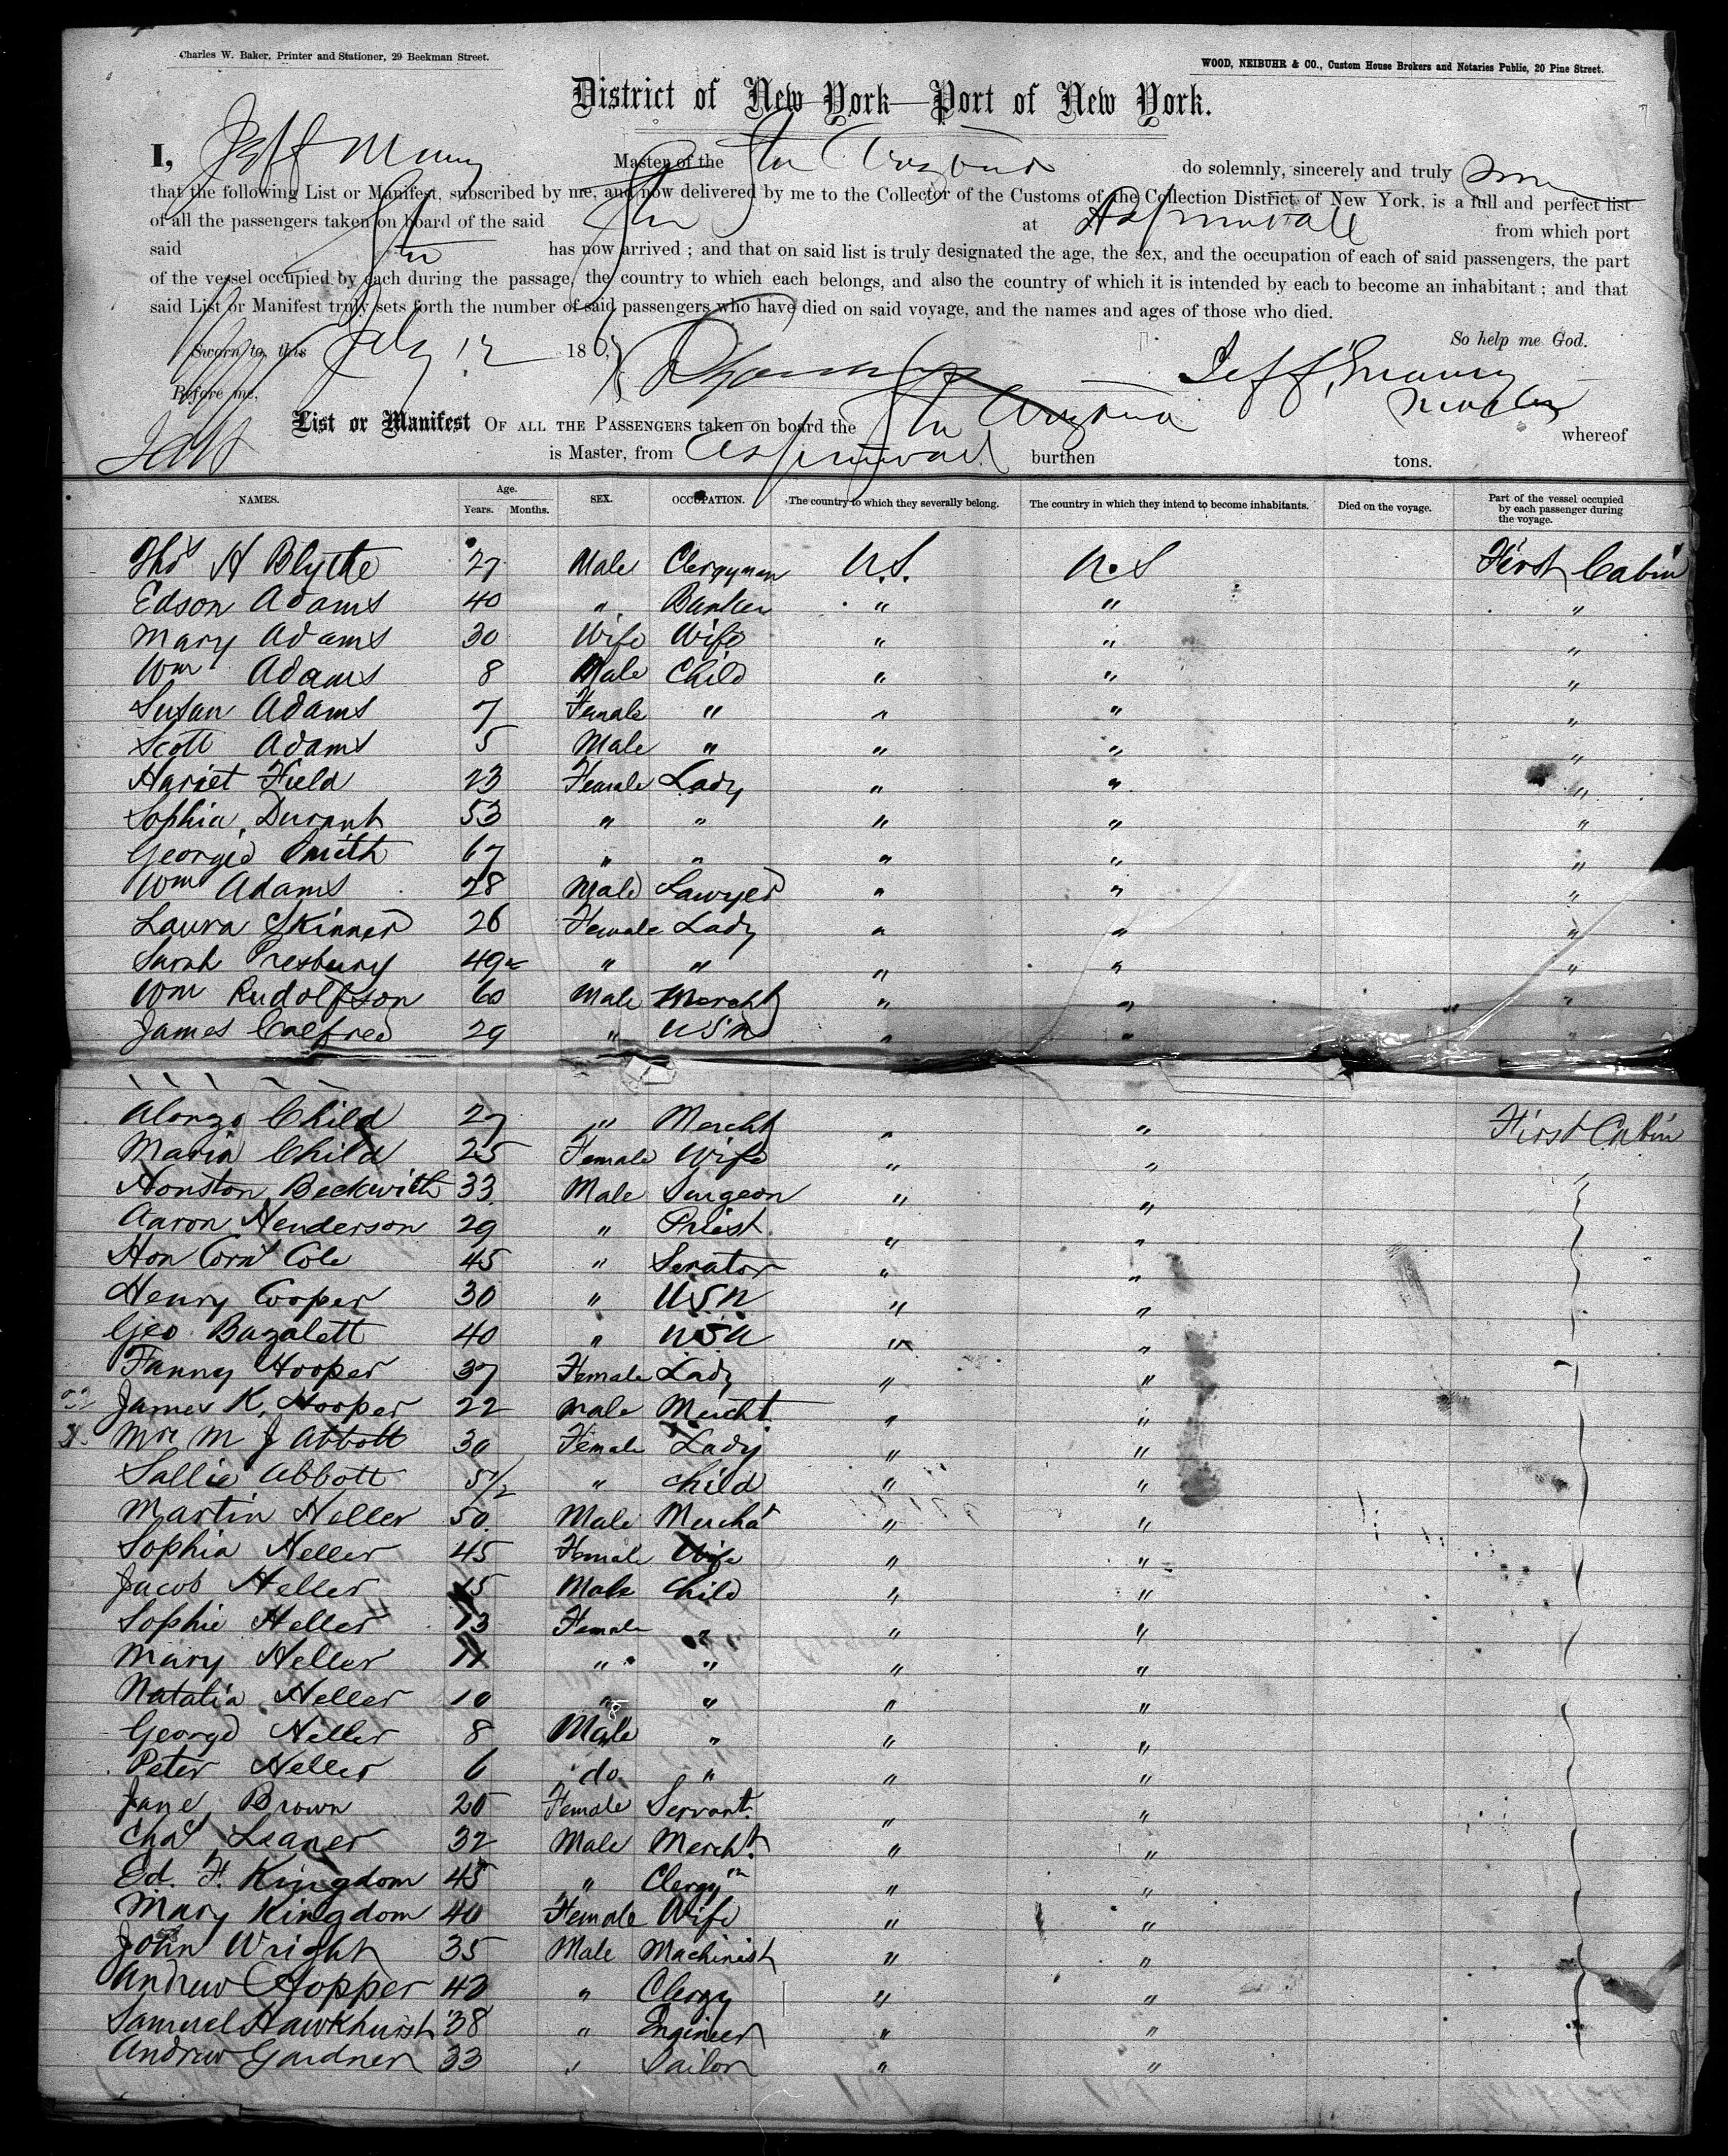 Charles W. Baker, Printer and Stationer, 29 Beekman Street.
WOOD, NEIBUHR & CO., Custom House Brokers and Notaries Public, 20 Pine Street.
District of New York—Port of New York.
I, Jeff Maury Master of the Str Arizona do solemnly, sincerely and truly swear
that the following List or Manifest, subscribed by me, and now delivered by me to the Collector of the Customs of the Collection District of New York, is a full and perfect list
of all the passengers taken on board of the said Str at Aspinwall from which port
said Str has now arrived; and that on said list is truly designated the age, the sex, and the occupation of each of said passengers, the part
of the vessel occupied by each during the passage, the country to which each belongs, and also the country of which it is intended by each to become an inhabitant; and that
said List or Manifest truly sets forth the number of said passengers who have died on said voyage, and the names and ages of those who died.
So help me God.
Sworn to, this July 12 186
Jeff. Maury
Before me,
Master
List or Manifest OF ALL THE PASSENGERS taken on board the Str Arizona whereof
is Master, from Aspinwall burthen tons.
NAMES. Age. Years. Months. SEX. OCCUPATION. The country to which they severally belong. The country in which they intend to become inhabitants. Died on the voyage. Part of the vessel occupied by each passenger during the voyage.
Thos H Blythe 27 Male Clergyman U.S. U.S First Cabin
Edson Adams 40 " Banker " " "
Mary Adams 30 Wife Wife " " "
Wm Adams 8 Male Child " " "
Susan Adams 7 Female " " " "
Scott Adams 5 Male " " " "
Hariet Field 23 Female Lady " " "
Sophia Durant 53 " " " " "
Georgie Smith 67 " " " " "
Wm Adams 28 Male Lawyer " " "
Laura Skinner 26 Female Lady " " "
Sarah Presbury 49 " " " " "
Wm Rudolfson 60 Male Mercht " " " "
James Calfred 29 " USN " " "
Alonzo Child 27 " Mercht " " First Cabin
Maria Child 25 Female Wife " " "
Houston Beckwith 33 Male Surgeon " "
Aaron Henderson 29 " Priest " "
Hon Corns Cole 45 " Senator " "
Henry Cooper 30 " USN " "
Geo Bazalett 40 " USN " "
Fanny Hooper 37 Female Lady " "
James K. Hooper 22 Male Mercht " "
Mrs M J Abbott 30 Female Lady " "
Sallie Abbott 5 1/2 " Child " "
Martin Heller 50 Male Mercht " "
Sophia Heller 45 Female Wife " "
Jacob Heller 15 Male Child " "
Sophie Heller 13 Female " " "
Mary Heller 11 " " " "
Natalia Heller 10 " " " "
George Heller 8 Male " " "
Peter Heller 6 do " " "
Jane Brown 25 Female Servant " "
Chas Leaner 32 Male Mercht " "
Ed. F. Kingdom 45 " Clergyn " "
Mary Kingdom 40 Female Wife " "
John Wright 35 Male Machinist " "
Andrew Hopper 43 " Clergy " "
Samuel Hawkhurst 38 " Engineer " "
Andrew Gardner 33 " Sailor " "